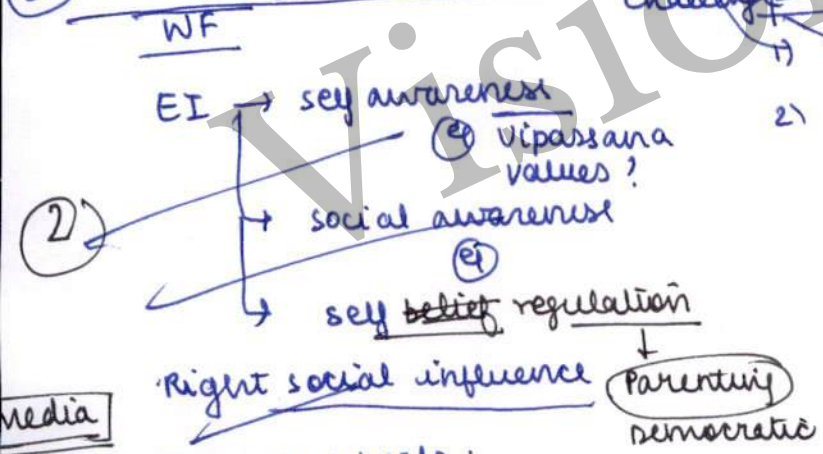 WF
1)
EI → self awareness
2)
eg Vipassana
values ?
2)
→ social awareness
eg
→ self belief regulation
Right social influence Parenting
Media
Democratic
VISIO